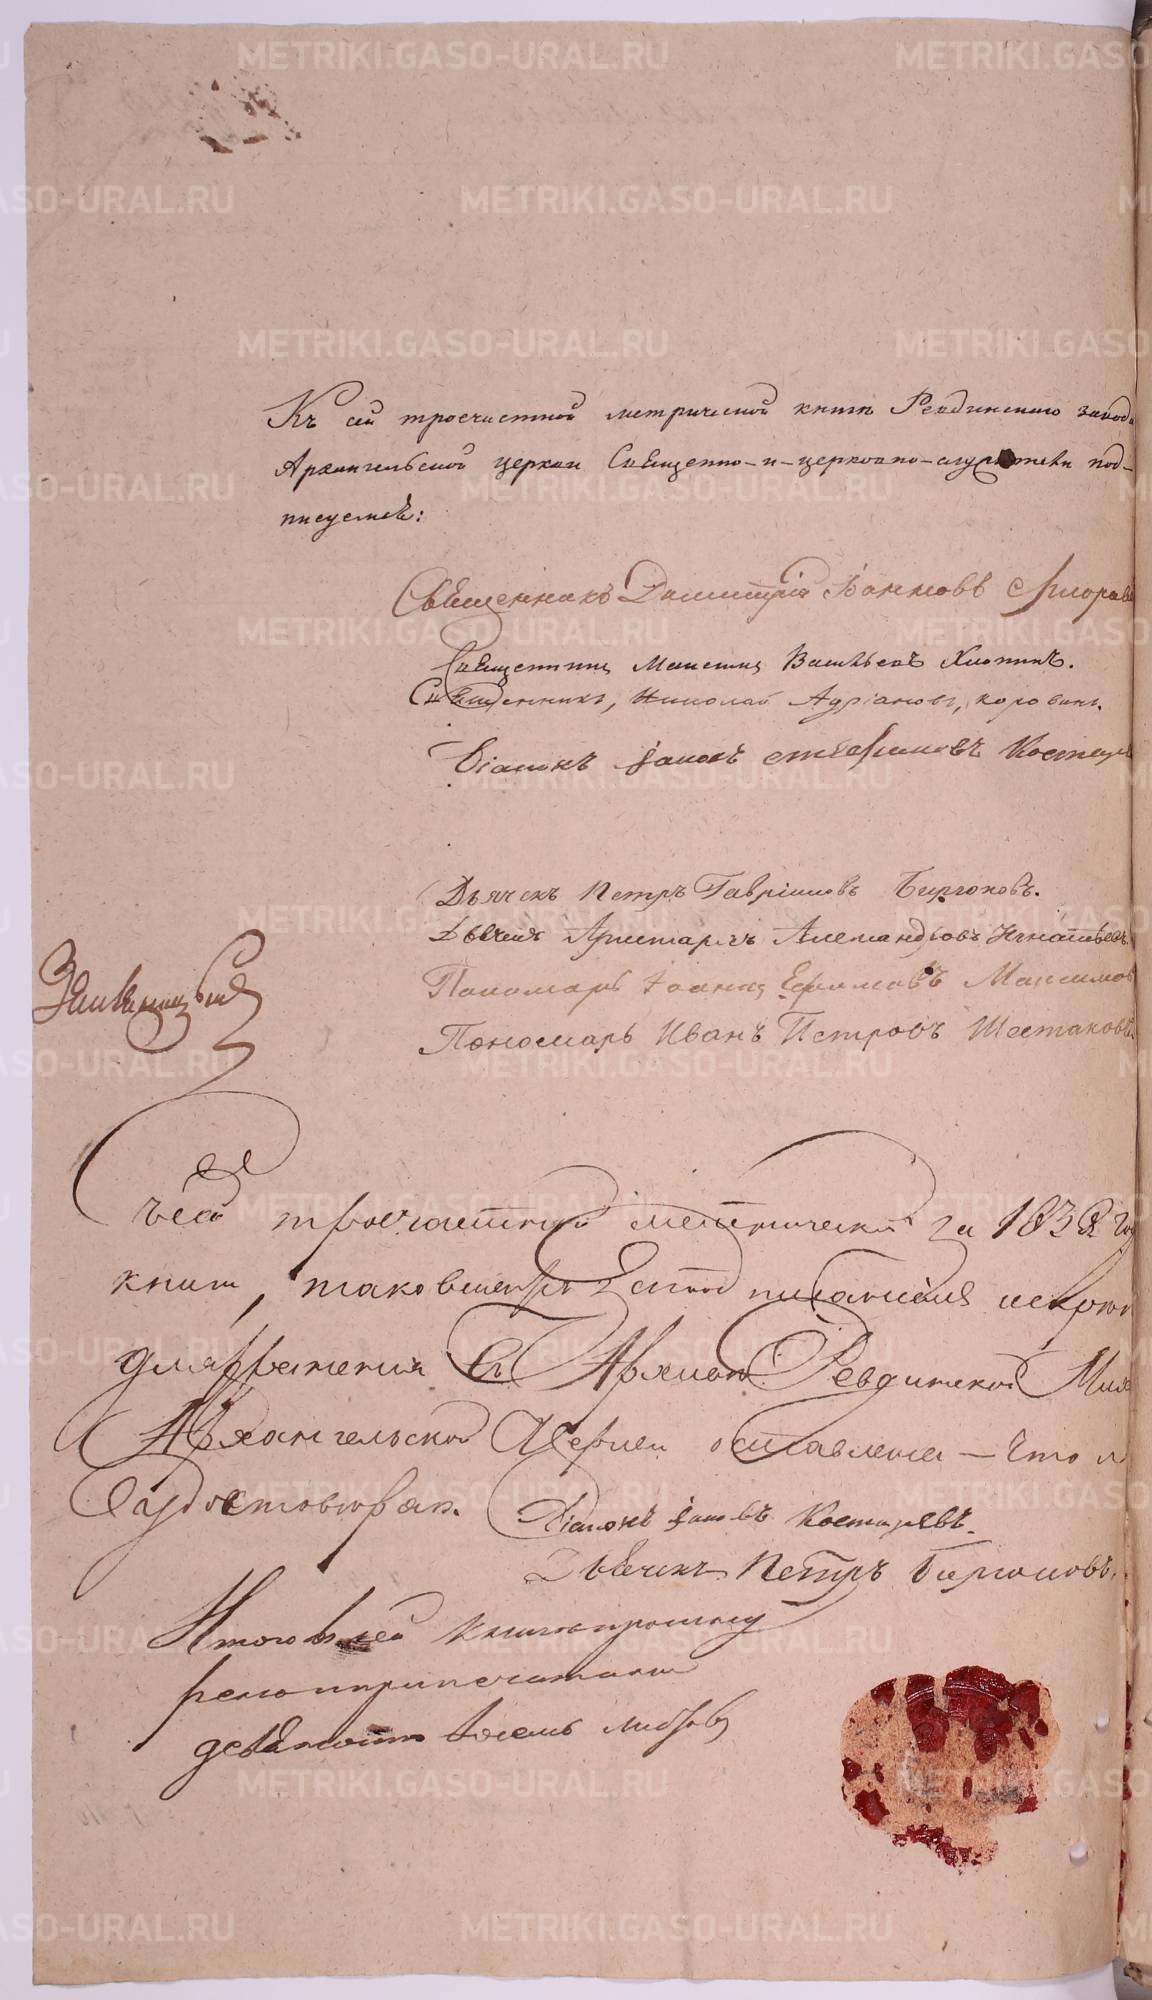 Къ сей троечастной метрической книгѣ Ревдинскаго завода
Архангельской церкви Священно-и-церковно-служители под-
писуемсѣ:
Священникъ Димитрій Іоанновъ
Священникъ Максимъ Васильевъ Хлопинъ.
Священникъ, Николай Адріановъ, Коровинъ.
Діаконъ Іаковъ Стефановъ Костарев
Дьячекъ Петръ Гавріиловъ Бирюковъ.
Дьячекъ Аристархъ Александровъ Игнатьевъ.
Пономарь Іоаннъ Ефимовъ Максимов
Пономарь Иванъ Петровъ Шестаковъ.
Съ сей троечастной метрической за 1838 год
книги, таковыеже
для храненія въ Архивѣ Ревдинской Мих
Архангельской Церкви оставлена — что и
удостовѣряем.
Діаконъ Іаковъ Костаревъ.
Дьячекъ Петръ Бирюковъ.
Итого въ сей книгѣ прошну
рено и припечатано
девяносто восемь листовъ
METRIKI.GASO-URAL.RU